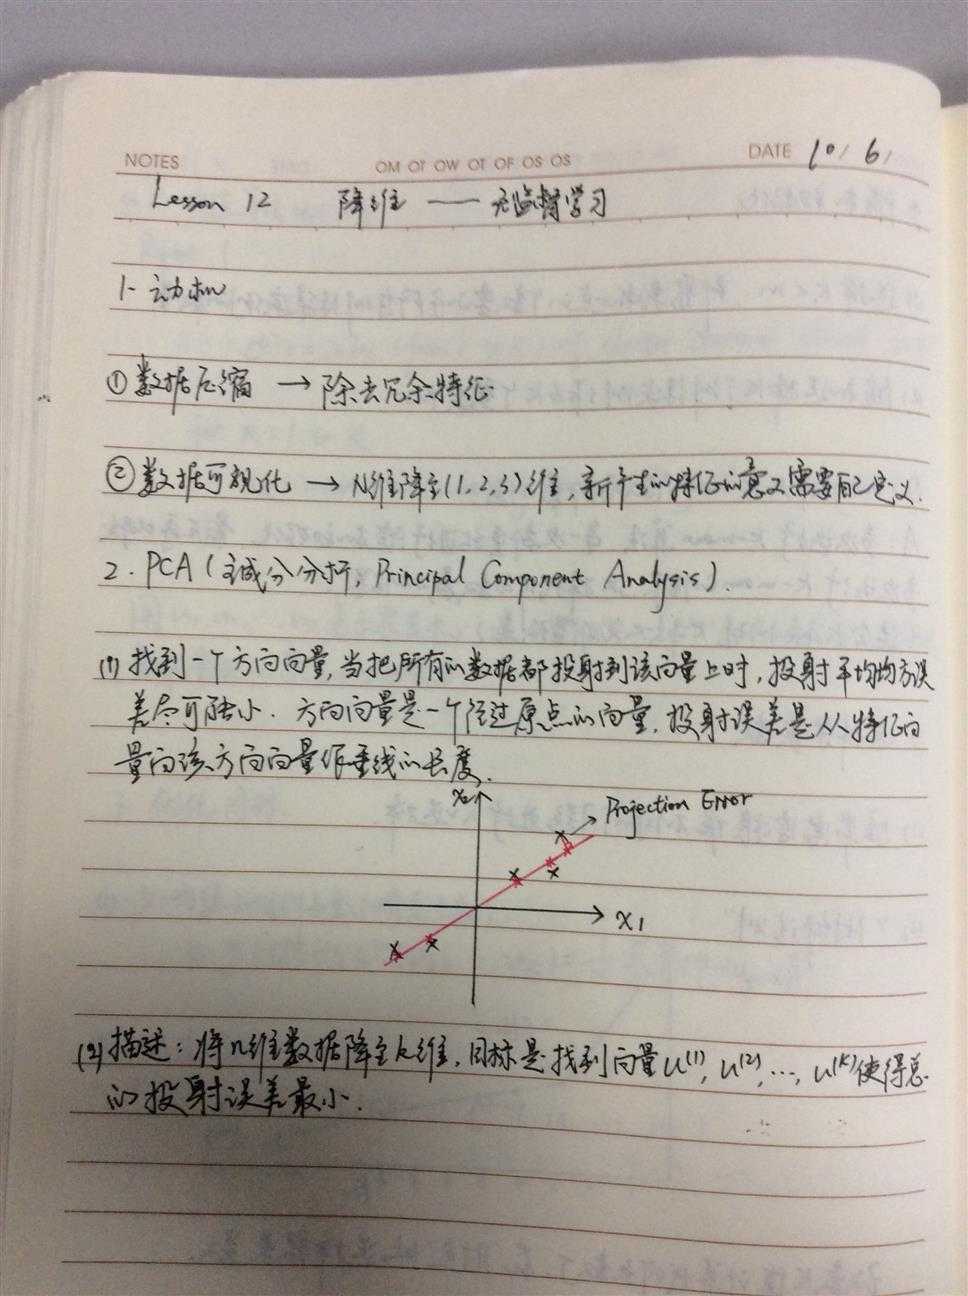 NOTES
OM OT OW OT OF OS OS
DATE 10/6/
Lesson 12 降维 —— 无监督学习
1. 动机
① 数据压缩 → 除去冗余特征
② 数据可视化 → N维降至(1,2,3)维,新产生的特征的意义需要自己定义.
2. PCA(主成分分析, Principal Component Analysis).
(1) 找到一个方向向量,当把所有的数据都投射到该向量上时,投射平均均方误
差尽可能小. 方向向量是一个经过原点的向量,投射误差是从特征向
量向该方向向量作垂线的长度.
x2
Projection Error
x1
(2) 描述:将n维数据降至k维,目标是找到向量u(1), u(2), ..., u(k)使得总
的投射误差最小.